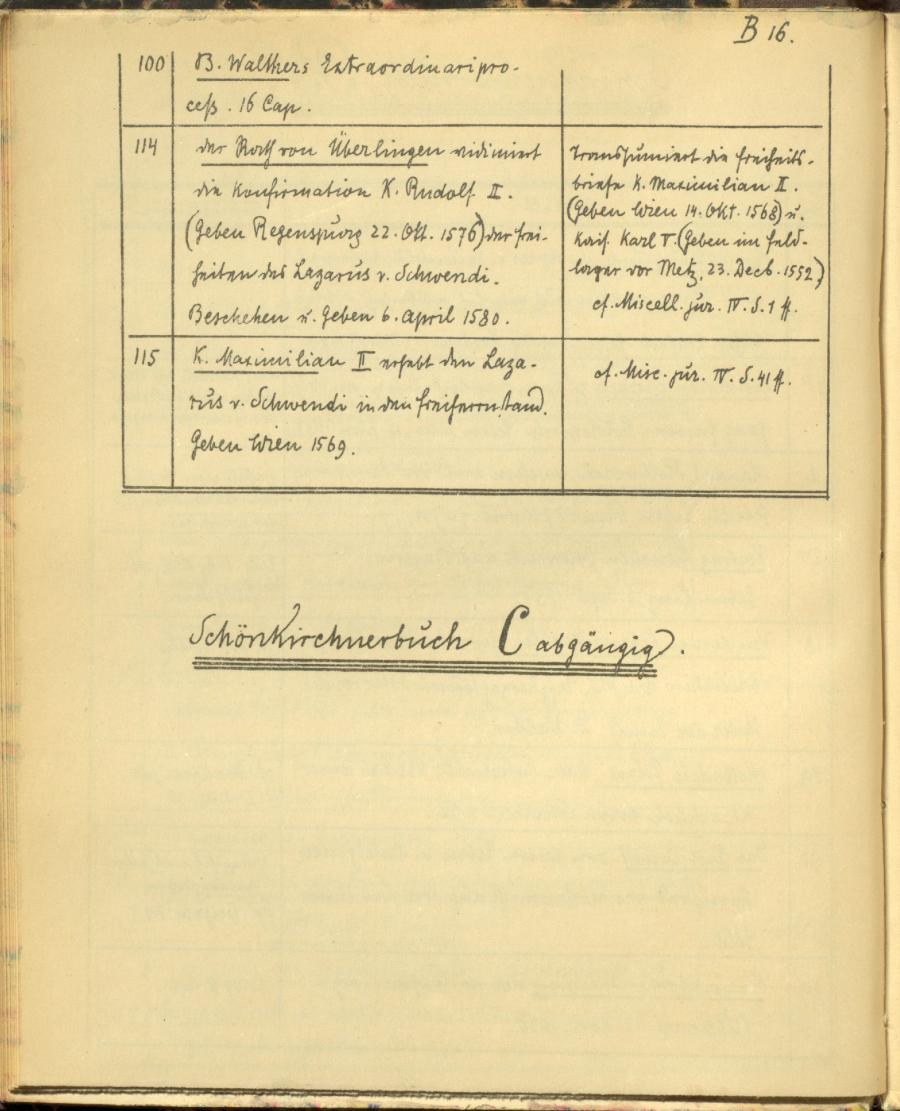 B 16.
100
B. Walthers Extraordinaripro-
ceß. 16 Cap.
114
der Rath von Überlingen vidimiert
die Konfirmation K. Rudolf II.
(Geben Regenspurg 22. Okt. 1576) der Frei-
heiten des Lazarus v. Schwendi.
Beschehen u. Geben 6. April 1580.
transsumiert die Freiheits-
briefe K. Maximilian II.
(Geben Wien 14. Okt. 1568) u.
Kais. Karl V. (Geben im Feld-
lager vor Metz, 23. Decb. 1552)
cf. Miscell. jur. IV. S. 1 ff.
115
K. Maximilian II erhebt den Laza-
rus v. Schwendi in den Freiherrnstand.
Geben Wien 1569.
cf. Misc. jur. IV. S. 41 ff.
Schönkirchnerbuch C abgängig.